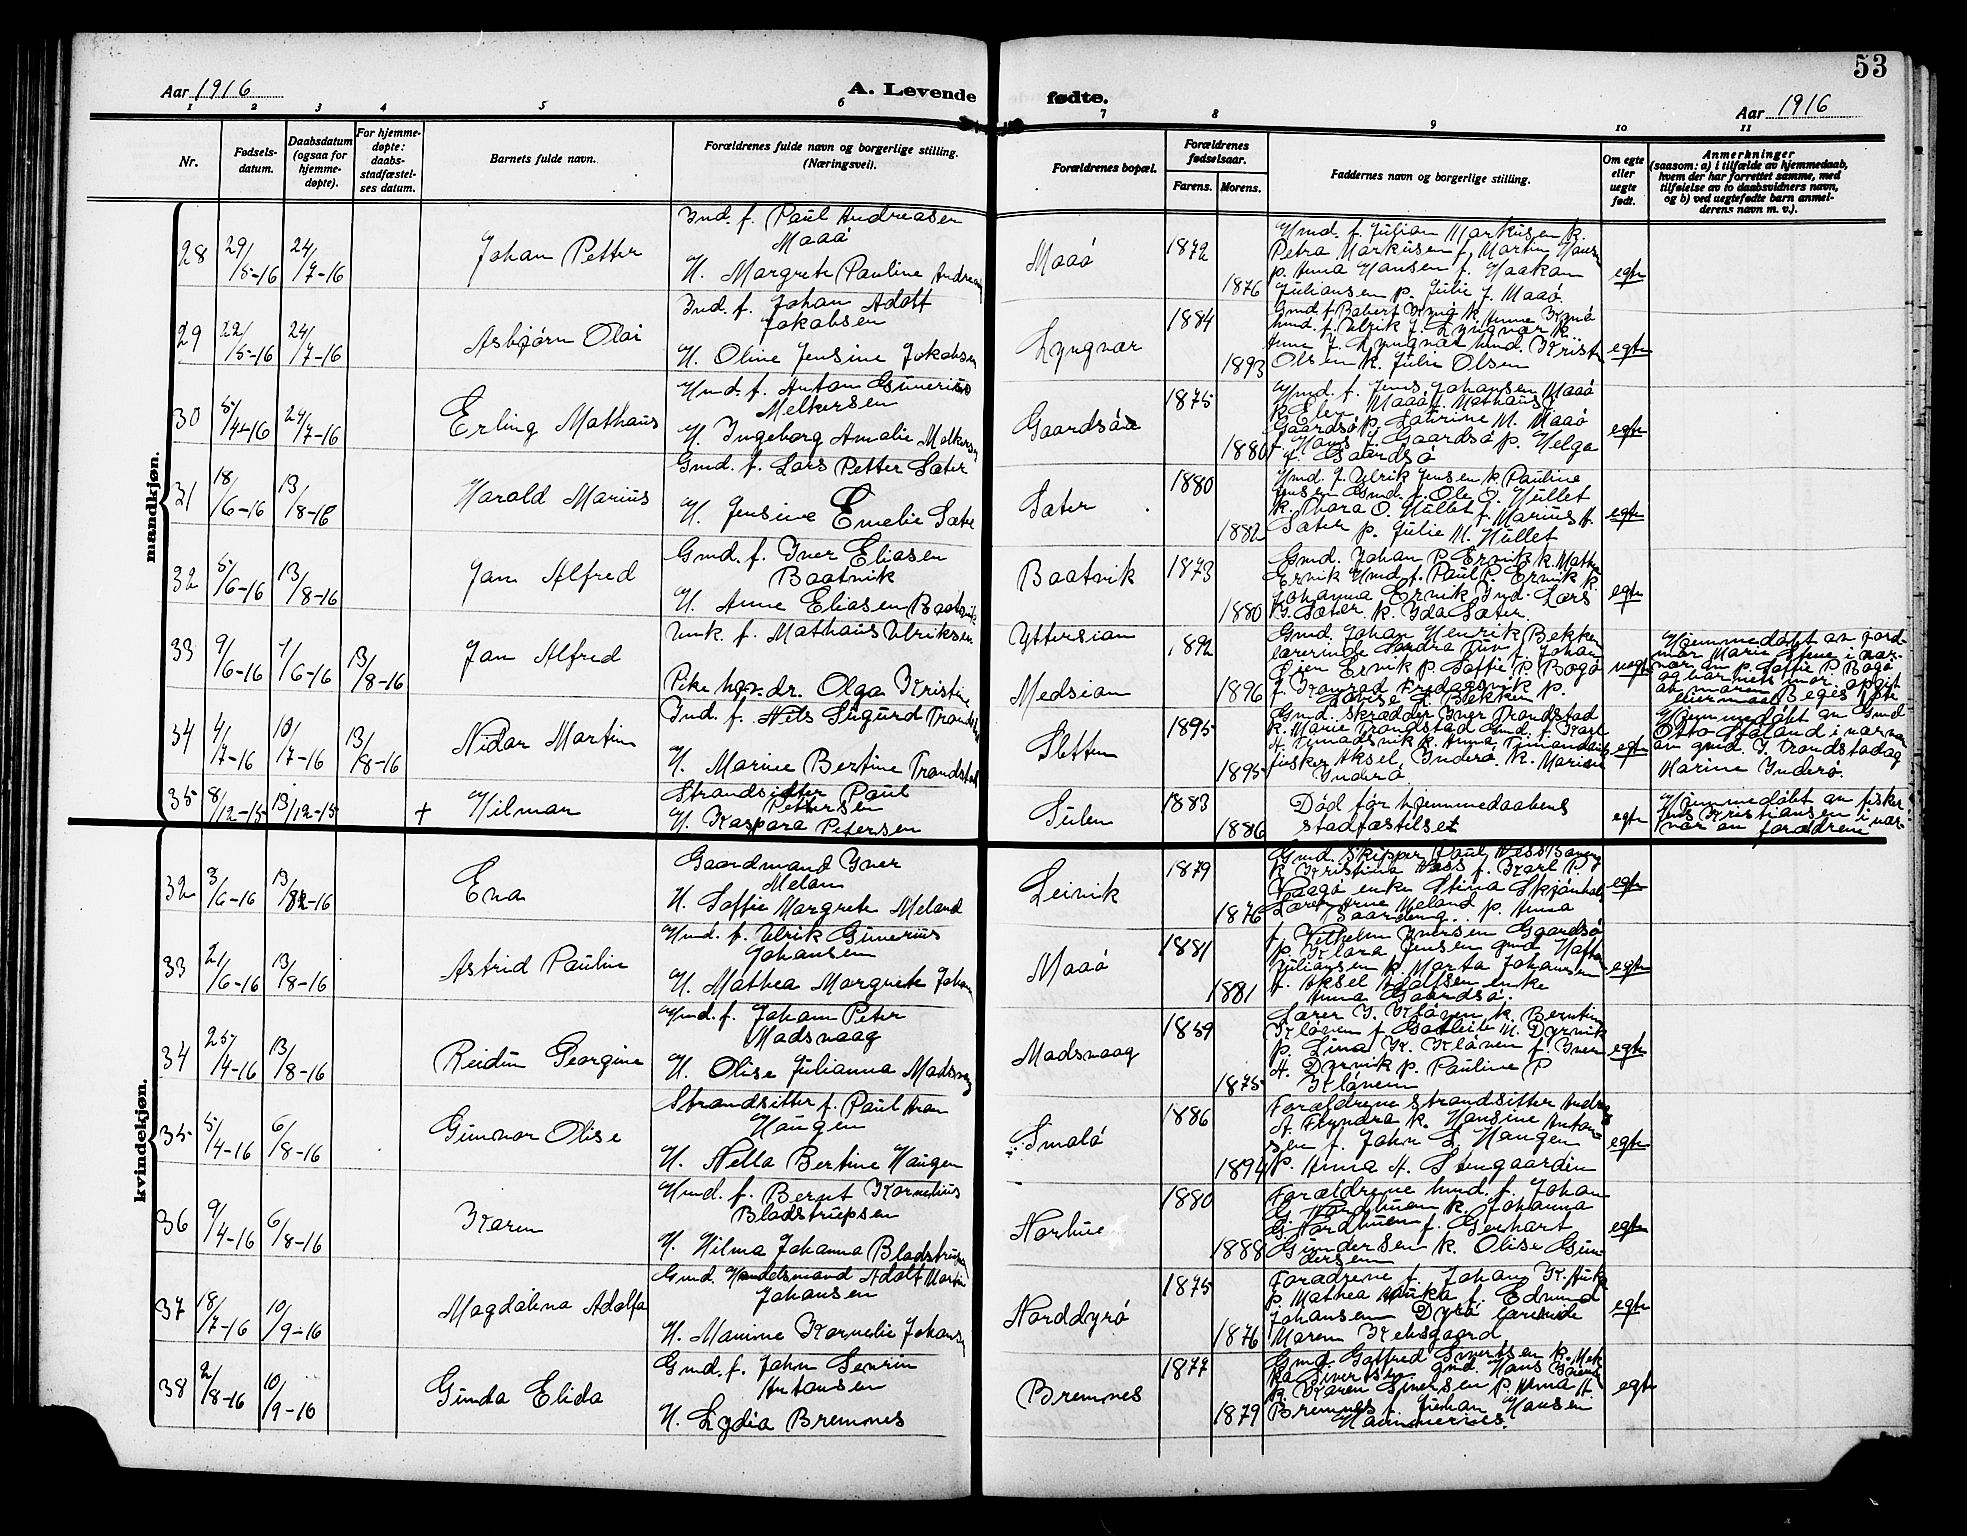 53
Aar 1916
A. Levende fødte.
Aar 1916
1 2 3 4 5 6 7 8 9 10 11
Nr.
Fødsels-
datum.
Daabsdatum
(ogsaa for
hjemme-
døpte).
For hjemme-
døpte:
daabs-
stadfæstel-
ses datum.
Barnets fulde navn.
Forældrenes fulde navn og borgerlige stilling.
(Næringsvei).
Forældrenes bopæl.
Forældrenes
fødselsaar.
Farens. Morens.
Faddernes navn og borgerlige stilling.
Om egte
eller
uegte
født.
Anmerkninger
(saasom: a) i tilfælde av hjemmedaab,
hvem der har forrettet samme, med
tilføielse av to daabsvidners navn,
og b) ved uegtefødte barn anmel-
derens navn m. v.).
mandkjøn.
28 29/5-16 24/7-16 Johan Petter
Ind. f. Paul Andreasen
Maaö
H. Margrete Pauline Andreasen
Maaö 1872 1876
Hmd. f. Julian Markusen k.
Petra Markusen f. Martin Hansen
p. Anna Hansen f. Haakon
Juliansen p. Julie J. Maaö.
egte
29 22/5-16 24/7-16 Asbjørn Olai
Ind. f. Johan Adolf
Jakobsen
H. Oline Jensine Jakobsen
Lyngvær 1884 1893
hmd. f. Ulrik J. Lyngvær k.
Anne J. Lyngvær hmd. Krist
Olsen k. Julie Olsen
egte
30 5/4-16 24/7-16 Erling Mathæus
Hmd. f. Anton Gunerius
Melkersen
H. Ingeborg Amalie Melkersen
Gaardsöæ 1875 1880
Hmd. f. Jens Johansen Maaö
k. Elen Maaö f. Mathæus J
Gaardsö p. Katrine M. Maaö
f. Hans J. Gaardsö p. Helga
J. Gaardsö
egte
31 18/6-16 13/8-16 Harald Marius
Gmd. f. Lars Petter Sæter
H. Jensine Emelie Sæter
Sæter 1880 1882
Hmd. f. Ulrik Jensen k. Pauline
Jensen Gmd. f. Ole O. Hullet
k. Thora O. Hullet f. Marius A.
Sæter p. Julie M. Hullet
egte
32 5/6-16 13/8-16 Jan Alfred
Gmd. f. Iver Eliasen
Baatvik
H. Anne Eliasen Baatvik
Baatvik 1873 1880
Gmd. Johan P. Ervik k. Mathea
Ervik Hmd. f. Paul P. Ervik k.
Johanna Ervik Ind. Lars
Sæter k. Ida Sæter
egte
33 9/6-16 9/6-16 13/8-16 Jan Alfred
Unk. f. Mathæus Ulriksen
Pike hgv. dr. Olga Kristine
Yttersian
Medsian 1892 1896
Gmd. Johan Henrik Bekken
lærerinde Sandra Tun f. Johan
Eien Ervik p. Soffie P. Bogö
f. Konrad Fredagsvik p.
Lovise L. Bekken
uegte
Hjemmedøbt av jord-
mor Marie Stene i nær-
vær av p. Soffie P Bogö
og barnets mor. opgit
av moren Beges 1ste
leiermaal
34 4/7-16 10/7-16 13/8-16 Nidar Martin
Ind. f. Nils Sigurd Trandstad
H. Marine Bertine Trandstad
Sletten 1895 1895
Gmd. skrædder Iver Trandstad
k. Marie Trandstad Gmd. f. Karl
fisker Aksel Inderö k. Marine
Inderö
egte
Hjemmedøbt av Gmd
Otto Staland i nærvær
av gmd. J. Trandstad og
Marine Inderö.
35 8/12-15 13/12-15 † Hilmar
Strandsitter Paul
Pettersen
H. Kaspara Petersen
Sulen 1883 1886
Død før hjemmedaabens
stadfæstelse
egte
Hjemmedøbt av fisker
Jens Kristiansen i nær-
vær av forældrene
kvindekjøn.
32 3/6-16 13/8-16 Eva
Gaardmand Iver
Meland
H. Soffie Margrete Meland
Leirvik 1879 1876
Gmd. Skipper Paul Vass
k Kristina Vass f. Karl P.
Vaagö enke Stina Skjönhals
Lærer Arne Meland p. Anna
egte
33 21/6-16 13/8-16 Astrid Pauline
Hmd. f. Ulrik Gunerius
Johansen
H. Mathea Margrete Johansen
Maaö 1881 1881
f. Vilhelm Iversen Gaardsö
p. Klara Jensen gmd.
Juliansen k. Marta Johansen
f. Aksel Adolfsen enke
Anna Gaardsö.
egte
34 25/4-16 13/8-16 Reidun Georgine
Hmd. f. Johan Peter
Madsvaag
H. Olise Julianna Madsvaag
Madsvaag 1859 1875
Lærer J. Kløven k. Berntine
Kløven f. Gotleite M. Dyrvik
p. Lina K. Kløven f. Iver
A. Dyrvik p. Pauline P
Kløven
egte
35 5/4-16 6/8-16 Gunvor Olise
Strandsitter f. Paul Aron
Haugen
H. Nella Bertine Haugen
Smalö 1886 1894
Forældrene strandsitter Andreas
A. Flyndra k. Hansine Anton-
sen f. John L. Haugen
p. Anna A. Stengaarden
egte
36 9/4-16 6/8-16 Karen
Hmd. f. Bernt Kornelius
Bladstrupsen
H. Hilma Johanna Bladstrupsen
Norhue 1880 1888
Forældrene hmd. f. Johan
G. Nordhuen k. Johanna
G. Nordhuen f. Gerhart
Gundersen k. Olise Gun-
dersen
egte
37 18/7-16 10/9-16 Magdalena Adolfa
Gmd. Handelsmand Adolf Martin
Johansen
H. Mamme Kornelie Johansen
Norddyrö 1875 1876
Forældrene f. Johan K. Auka
p. Mathea Auka f. Edmund
Johansen Dyrö lærerinde
Maren Kelsgaard
egte
38 2/8-16 10/9-16 Gunda Elida
Gmd. f. John Sevrin
Antonsen
H. Lydia Bremnes
Bremnes 1877 1879
Gmd. Gotfred Sivertsen k. Mek
ka Sivertsen gmd. Hans
k. Karen Sivertsen p. Anna A.
Bremnes f. Johan Hansen
Hammernes.
egte